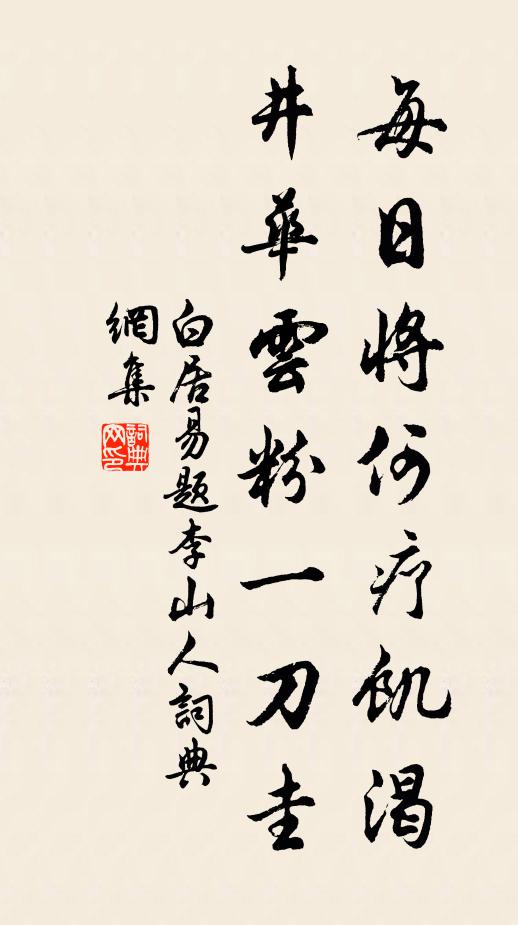 每日將何疗飢渴
井華雲粉一刀圭
白居易題李山人詞典
網集
詞典
网印